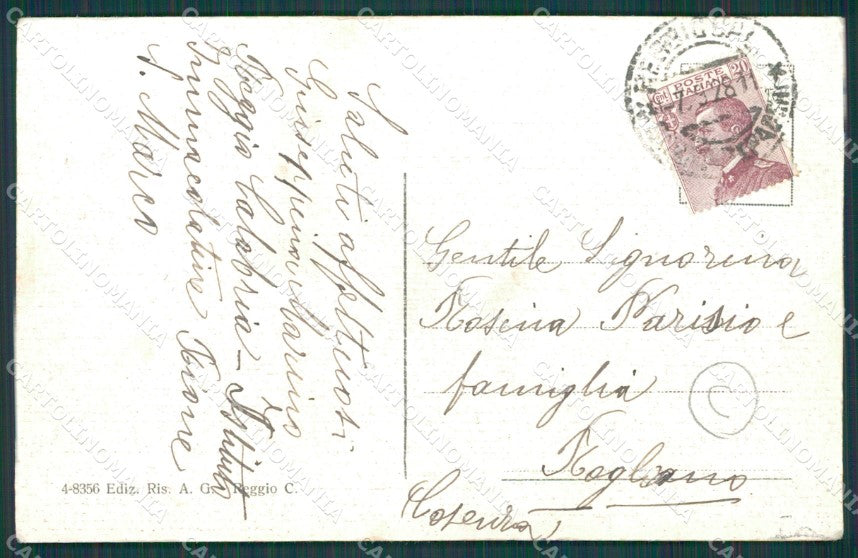 Saluti affettuosi
Giuseppina Marino
Reggio Calabria - Istituto
Immacolatine Rione
S. Marco
POSTE
ITALIANE
Gentile Signorina
Rosina Parisio e
famiglia
Rogliano
Cosenza
C
4-8356 Ediz. Ris. A. G. Reggio C.
CARTOLINOMANIA